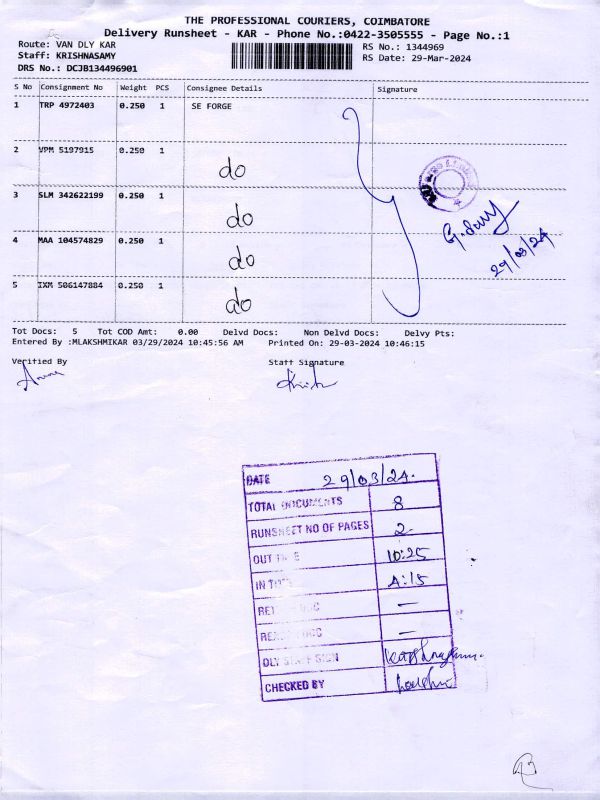 THE PROFESSIONAL COURIERS, COIMBATORE
Delivery Runsheet - KAR - Phone No.:0422-3505555 - Page No.:1
Route: VAN DLY KAR
RS No.: 1344969
Staff: KRISHNASAMY
RS Date: 29-Mar-2024
DRS No.: DCJB134496901
S No Consignment No Weight PCS Consignee Details Signature
1 TRP 4972403 0.250 1 SE FORGE
2 VPM 5197915 0.250 1 do
3 SLM 342622199 0.250 1 do
4 MAA 104574829 0.250 1 do
5 IXM 506147884 0.250 1 do
29/03/24
Tot Docs: 5 Tot COD Amt: 0.00 Delvd Docs: Non Delvd Docs: Delvy Pts:
Entered By :MLAKSHMIKAR 03/29/2024 10:45:56 AM Printed On: 29-03-2024 10:46:15
Verified By Staff Signature
DATE 29/03/24.
TOTAL DOCUMENTS 8
RUNSHEET NO OF PAGES 2
OUT TIME 10:25
IN TIME 4:15
DLY STAFF SIGN
CHECKED BY